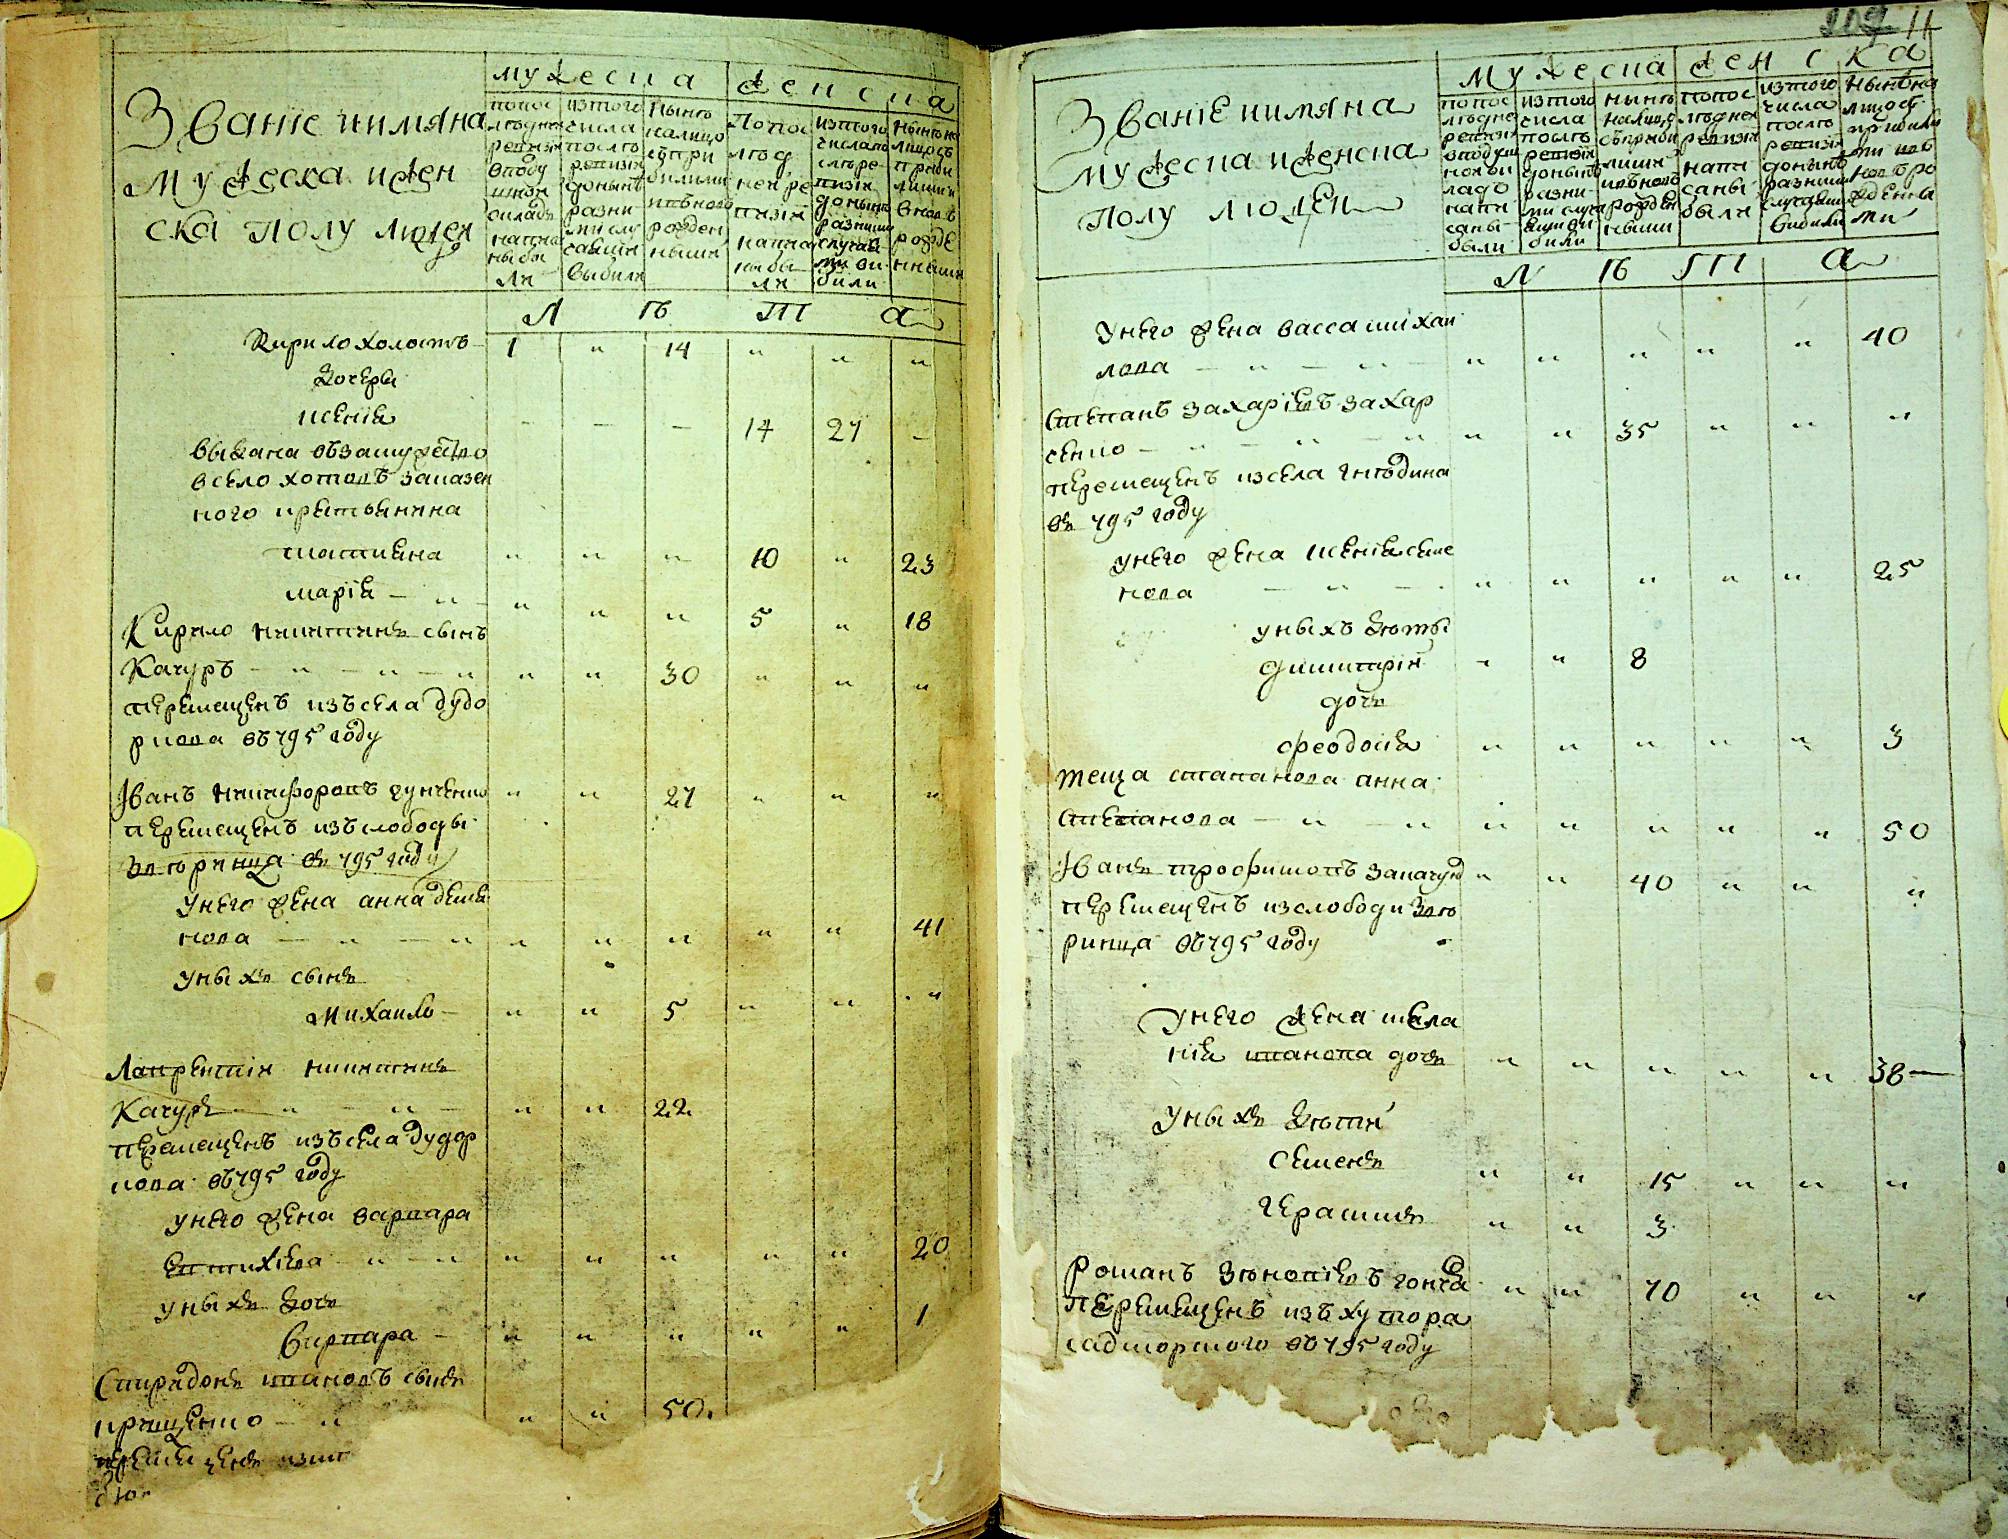 Званіе иимяна
Мужеска ижен
ска полу людей
мужеска женска
попос
лѣдней
ревизіи
вподу
шном
окладѣ
написа
ны бы
ли
изтого
числа
послѣ
ревизіи
донынѣ
разни
ми слу
чаями
выбили
Нынѣ
налицо
съпри
билими
ивъново
рожден
ными
Попос
лѣд
ней ре
визіи
написа
ны бы
ли
изтого
числапо
слѣре
визіи
донынѣ
разними
случая
ми ви
били
Нынѣна
лицосъ
приби
лими
вновь
рожде
нними
Л ѣ т а
Кирило холостъ 1 " 14 " " "
Дочери
Ксенія 14 27
выдана въ замужество
всело хотовъ заказен
ного крестьянина
татияна " " " 10 " 23
марія " " " 5 " 18
Кирило никитинъ сынъ
Качуръ " " 30 " " "
перемещенъ изъ села дудо
ркова въ 795 году
Іванъ никифоровъ гунченко " " 27 " " "
перемещенъ изъ слободы
Згорянца въ 795 году
Унего жена анна демя
нова " " " " " 41
Унихъ сынъ
Михаилъ " " 5 " " "
Лаврентій никитинъ
Качуръ " " 22
перемещенъ изъ села дудор
кова въ 795 году
унего жена варвара
Евтихіева " " " " " 20
унихъ дочь
Варвара " " " " " 1
Спиридонъ ивановъ синъ
кращенко " " 50.
перемещенъ изъ
11
Званіе иимяна
мужеска иженска
полу людей
мужеска женска
попос
лѣдней
ревизіи
вподуш
номок
ладѣ
напи
саны
были
изтого
числа
послѣ
ревизіи
донынѣ
разни
ми случа
ями ви
били
нынѣ
налицо
съприби
лими
ивъновь
рожден
ними
попос
лѣдней
ревизіи
напи
саны
были
изтого
числа
послѣ
ревизіи
донынѣ
разними
случаями
вибили
Нынѣна
лицосъ
прибили
ми ивъ
новьро
жденны
ми
Л ѣ т а
Унего жена васса михаи
лова " " " " " 40
Степанъ захаріевъ захар
ченко " " 35 " " "
перемещенъ изсела гнѣдина
въ 795 году
унего жена ксенія семе
нова " " " " " 25
унихъ дѣти
Димитрій " " 8
дочь
феодосія " " " " " 3
теща степанова анна
Степанова " " " " " 50
Іванъ трофимовъ закачур " " 40 " " "
перемещенъ изслободи Зго
ринца въ 795 году
Унего жена мела
нія иванова дочь " " " " " 38
Унихъ дѣти
Семенъ " " 15 " " "
Герасимъ " " 3
Романъ Зѣновіевъ гонча " " 70 " " "
перемещенъ изъ хутора
въ 795 году